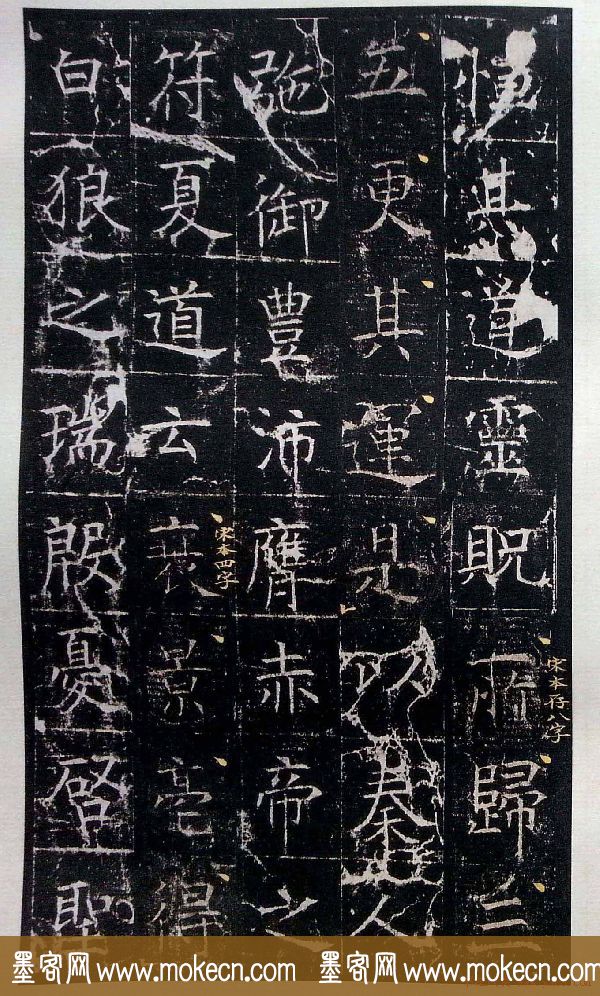 其道靈貺所歸三
五更其運是以秦人
弛御豐沛膺赤帝之
符夏道云衰景亳得
白狼之瑞殷憂啓聖
宋本存八字
宋本四字
墨客网 www.mokecn.com 墨客网 www.mokecn.com